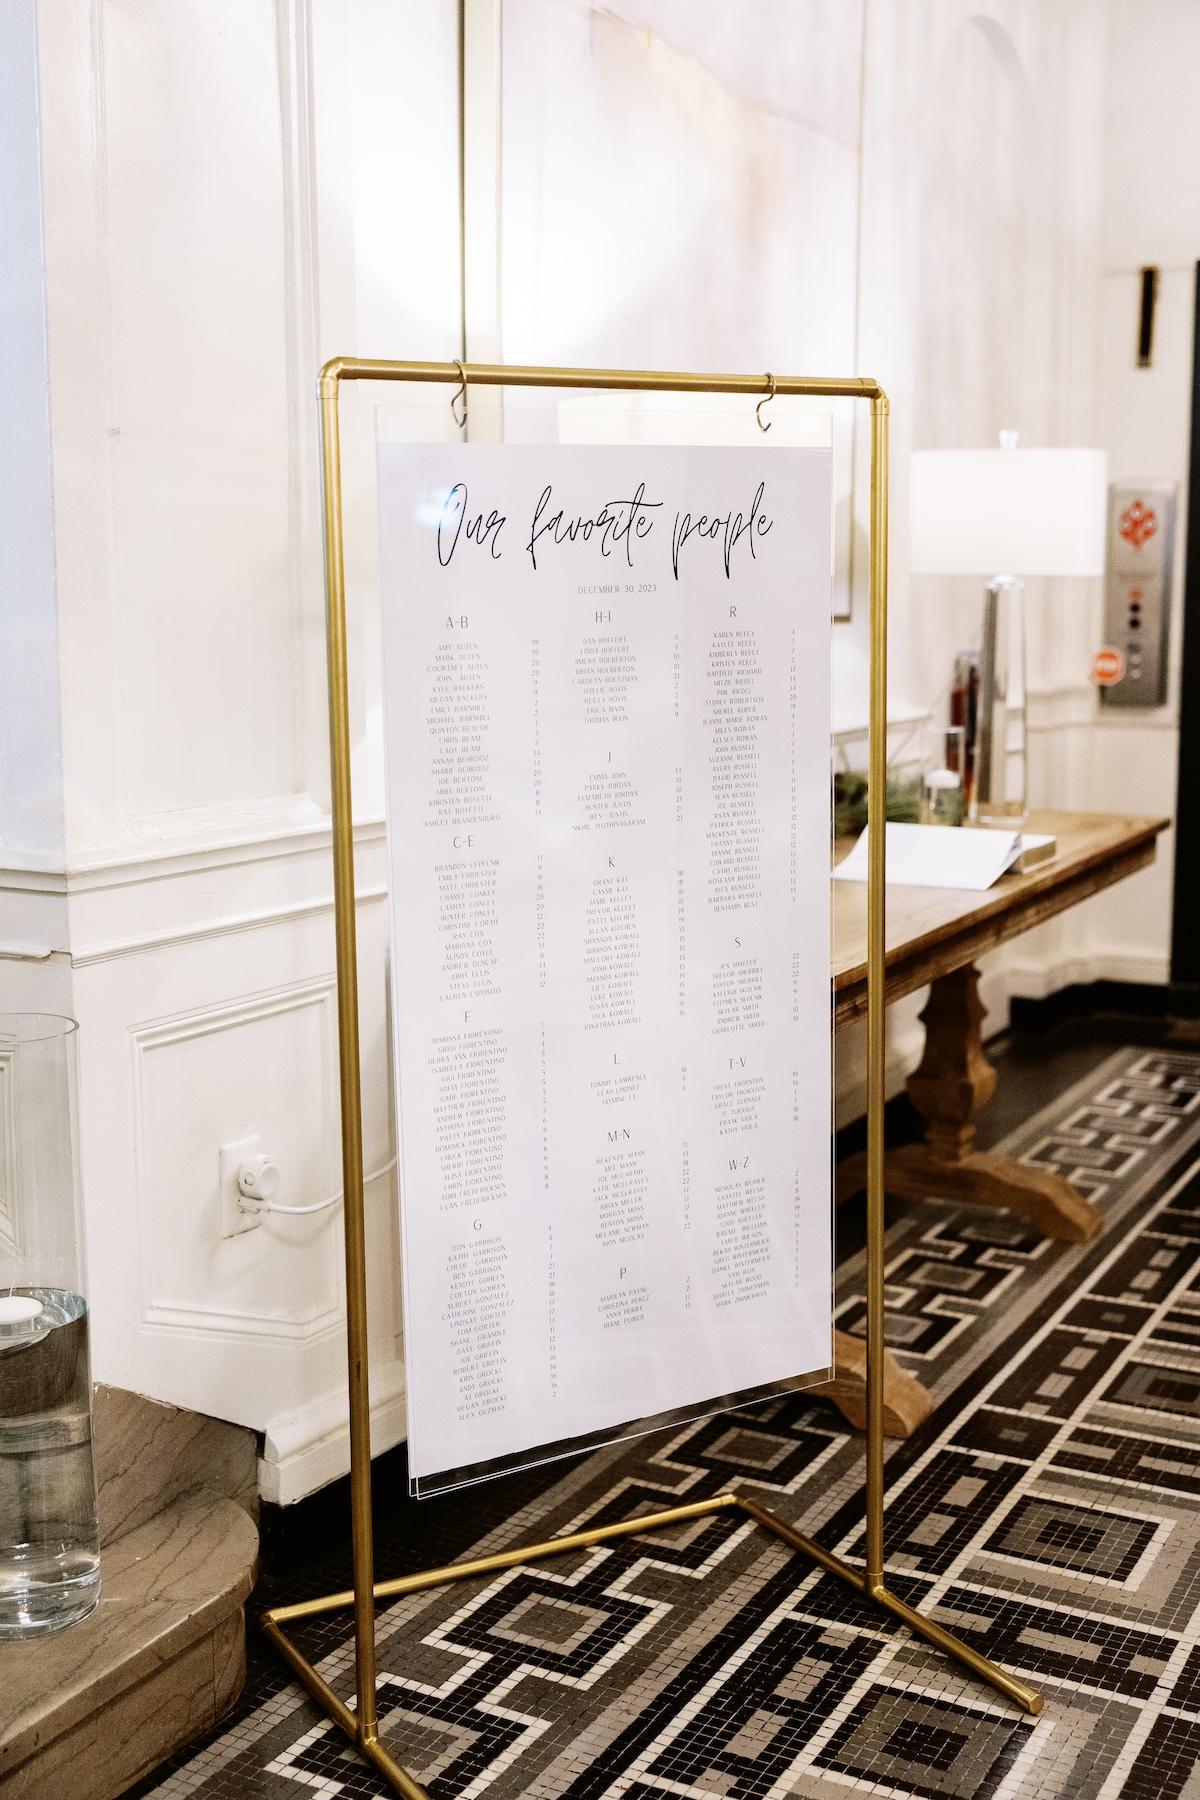 Our favorite people
DECEMBER 30 2023
A-B
AMY AUTEN 19
MARK AUTEN 19
COURTNEY AUTEN 20
JOHN AUTEN 20
KYLE BACKERS 9
MEGAN BACKERS 9
EMILY BARNHILL 2
MICHAEL BARNHILL 2
QUINTON BEALOR 1
CHRIS BEAM 3
CADY BEAM 3
ANNAH BEHROOZ 14
SHARIF BEHROOZ 14
JOE BERTONE 20
ABBY BERTONE 20
KHRISTEN BOYETTE 8
RAY BOYETTE 8
ASHLEY BRANDENBURG 14
C-E
BRANDON CEPELNIK 17
EMILY CHIDESTER 9
MATT CHIDESTER 9
CHAREE CONKEY 16
LASHAY CONLEY 20
HUNTER CONLEY 20
CHRISTINE CORAH 12
RAY COX 22
MARIANA COX 22
ALISON COYLE 17
ANDREW DUNLAP 8
ABBY ELLIS 14
STEVE ELLIS 14
LAUREN ESPOSITO 12
F
MARISSA FIORENTINO 1
GREG FIORENTINO 4
DEBRA ANN FIORENTINO 4
ISABELLA FIORENTINO 5
GIGI FIORENTINO 5
SOFIA FIORENTINO 5
GABE FIORENTINO 5
MATTHEW FIORENTINO 5
ANDREW FIORENTINO 5
ANTHONY FIORENTINO 6
PATTY FIORENTINO 6
DOMINICK FIORENTINO 6
CHUCK FIORENTINO 6
SHERRI FIORENTINO 6
ALISA FIORENTINO 6
CHRIS FIORENTINO 6
TORI FREDERICKSEN 8
EVAN FREDERICKSEN 8
G
DON GARRISON 4
KATHY GARRISON 4
CHLOE GARRISON 7
BEN GARRISON 7
KENDYL GOHEEN 21
COLTON GOHEEN 21
ALBERT GONZALEZ 18
CATHERINE GONZALEZ 18
LINDSAY GORTER 17
TOM GORTER
SHANE GRANDLE
DAVE GRIFFIN
JOE GRIFFIN
ROBERT GRIFFIN
KRIS GROCKI 16
ANDY GROCKI 16
AJ GROCKI 16
MEGAN GROCKI 16
ALEX GUZMAN 2
H-I
DAN HOFFERT 4
LINDA HOFFERT 4
JIMENA HOLBERTON 10
BRIAN HOLBERTON 10
CAROLYN HOLTZMAN 21
HALLIE HOVIS 2
REILLY HOVIS 2
ERICA IRVIN 9
THOMAS IRVIN 9
J
EMMA JOHN 14
PARKS JORDAN 10
ELIZABETH JORDAN 10
HUNTER JUSTIS 21
WES JUSTIS 21
NIKHIL JYOTHINAGARAM 21
K
GRANT KAY 18
CASSIE KAY 18
JAMIE KELLEY 10
TREVOR KELLEY 10
PATTY KITCHEN 19
ALLAN KITCHEN 19
SHANNON KOWALL 15
ADDISON KOWALL 15
MALLORY KOWALL 15
JOSH KOWALL 15
AMANDA KOWALL 15
LILY KOWALL 15
LUKE KOWALL 15
SUSAN KOWALL 16
JACK KOWALL 16
JONATHAN KOWALL 16
L
TOMMY LAWRENCE 18
LEAH LINDSEY 5
JASMINE LY 5
M-N
MCKENZIE MANN
MEL MANN
JOE MCCARTHY
KATIE MCELRAVEY 22
JACK MCELRAVEY 22
BRIAN MILLER 17
MORGAN MOSS 17
BENTON MOSS 17
MELANIE NEWMAN 8
JHON NICOLAS 22
P
MARILYN PAYNE 2
CHRISTINA PEREZ 2
ANNA PERRY 17
DIANE POWER 13
R
KAREN REECY 4
KAYLEE REECY 7
KIMBERLY REECY 7
KRISTEN REECY 7
BAPTISTE RICHARD 17
MITZIE RIEDEL 14
PHIL RIEDEL 14
SYDNEY ROBERTSON 20
SHEREE ROPER 19
JEANNE MARIE ROWAN
MILES ROWAN
KELSEY ROWAN
JOHN RUSSELL
SUZANNE RUSSELL
AVERY RUSSELL
DAVID RUSSELL
JOSEPH RUSSELL
SEAN RUSSELL
JOE RUSSELL
RYAN RUSSELL
PATRICK RUSSELL
MACKENZIE RUSSELL
FRANNY RUSSELL
DIANNE RUSSELL
EDWARD RUSSELL
CATHY RUSSELL
ROSEANN RUSSELL
RITA RUSSELL
BARBARA RUSSELL
BENJAMIN RUST 3
S
JEN SHAEFER 22
TREVOR SHERRILL 22
ASHTON SHERRILL 22
KYLEIGH SKOLNIK 9
STEPHEN SKOLNIK 9
SKYLAR SMITH
ANDREW SMITH 10
CHARLOTTE SMITH 10
T-V
TRENT THORNTON 10
TAYLOR THORNTON 10
GRACE TURNAGE 1
JT TURNAGE 1
FRANK VIOLA 18
KATHY VIOLA 18
W-Z
NICHOLAS WEIMER 2
CHANTEL WELSH 8
MATTHEW WELSH 8
JOANNE WHEELER 19
TODD WHEELER 19
JEREMY WILLIAMS 17
EMILIE WILSON
BEKAH WINTERMEIER
GREG WINTERMEIER
DANIEL WINTERMEIER
SAM WON
SKYLAR WOOD
MARITA ZIMMERMAN
MARK ZIMMERMAN